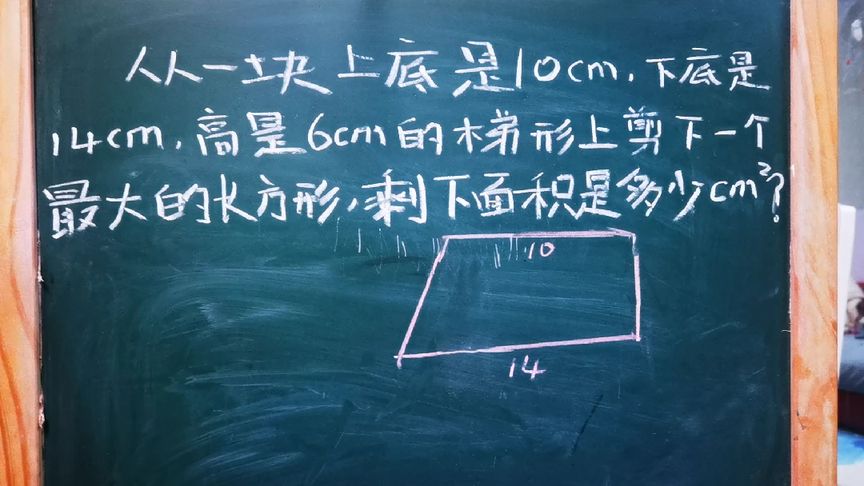 从一块上底是10cm,下底是
14cm,高是6cm的梯形上剪下一个
最大的长方形,剩下面积是多少cm²?
10
14